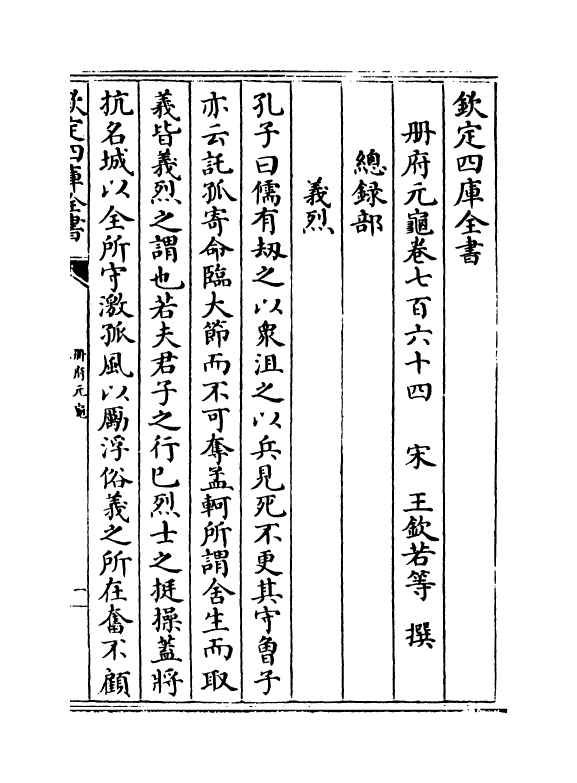 欽定四庫全書
冊府元龜卷七百六十四　宋　王欽若等　撰
總録部
義烈
孔子曰儒有刼之以衆沮之以兵見死不更其守魯子
亦云託孤寄命臨大節而不可奪孟軻所謂舍生而取
義皆義烈之謂也若夫君子之行已烈士之挺操蓋將
抗名城以全所守激孤風以厲浮俗義之所在奮不顧
欽定四庫全書
冊府元龜
一